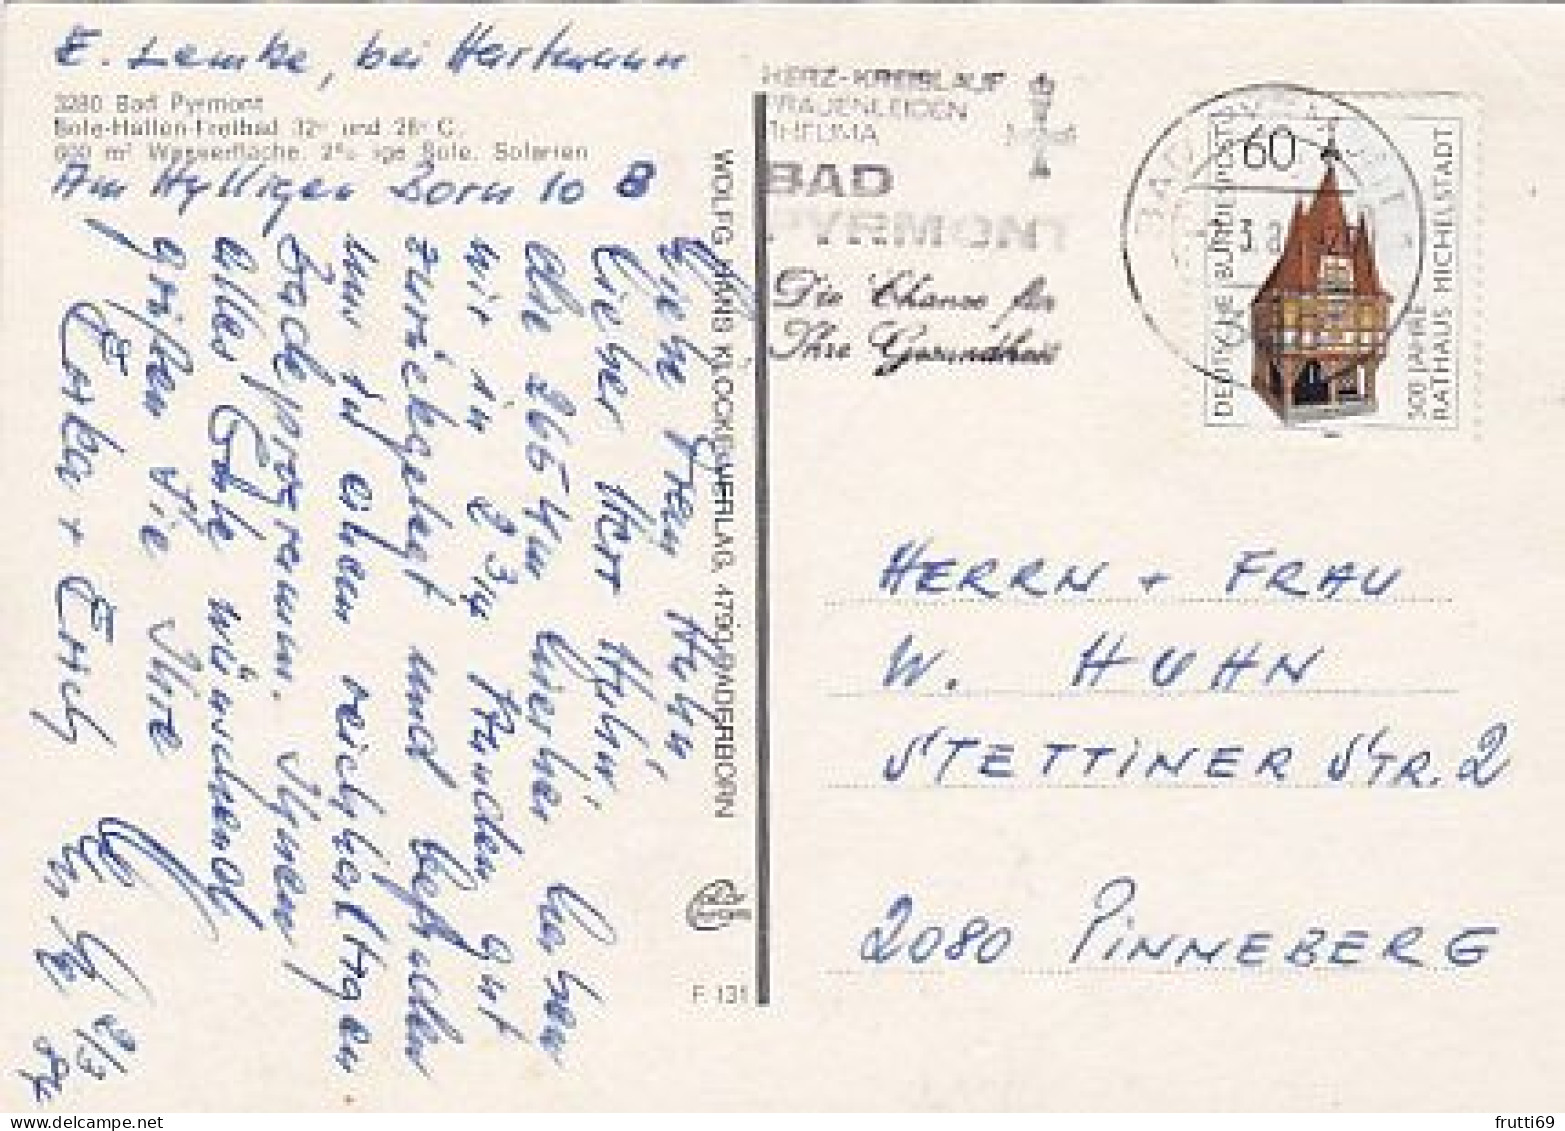 E. Lemke, bei Hartmann
3280 Bad Pyrmont
Sole-Hallen-Freibad 32° und 28° C.
600 m² Wasserfläche, ige Sole, Solarien
Am Hylligen Born 10 B
Liebe Frau Huhn,
lieber Herr Huhn!
die 265 km hierher haben
wir in 2 3/4 Stunden gut
zurückgelegt und
nun zu einem reichhaltigen
Badeprogramm. Ihnen
alles Gute wünschend
grüßen Sie Ihre
Erika + Erich
9/3
84
WOLFG. HANS KLOCKE VERLAG, 4790 PADERBORN
F 131
HERZ-KREISLAUF
FRAUENLEIDEN
RHEUMA
BAD
PYRMONT
Die Chance für
Ihre Gesundheit
60
DEUTSCHE BUNDESPOST
500 JAHRE
RATHAUS MICHELSTADT
HERRN + FRAU
W. HUHN
STETTINER STR. 2
2080 PINNEBERG
frutti69